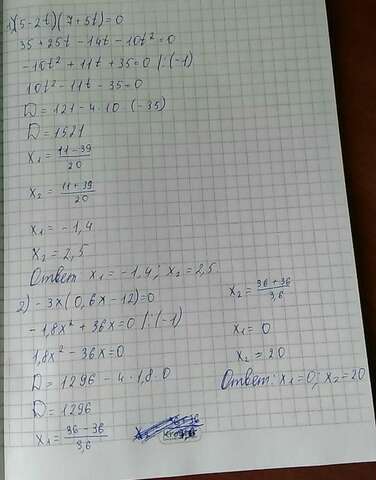 1)(5-2t)(7+5t)=0
35+25t-14t-10t²=0
-10t²+11t+35=0 /:(-1)
10t²-11t-35=0
D=121-4·10·(-35)
D=1521
x₁=(11-39)/20
x₂=(11+39)/20
x₁=-1,4
x₂=2,5
Ответ x₁=-1,4; x₂=2,5
2)-3x(0,6x-12)=0
-1,8x²+36x=0 /:(-1)
1,8x²-36x=0
D=1296-4·1,8·0
D=1296
x₁=(36-36)/3,6
x₂=(36+36)/3,6
x₁=0
x₂=20
Ответ: x₁=0; x₂=20